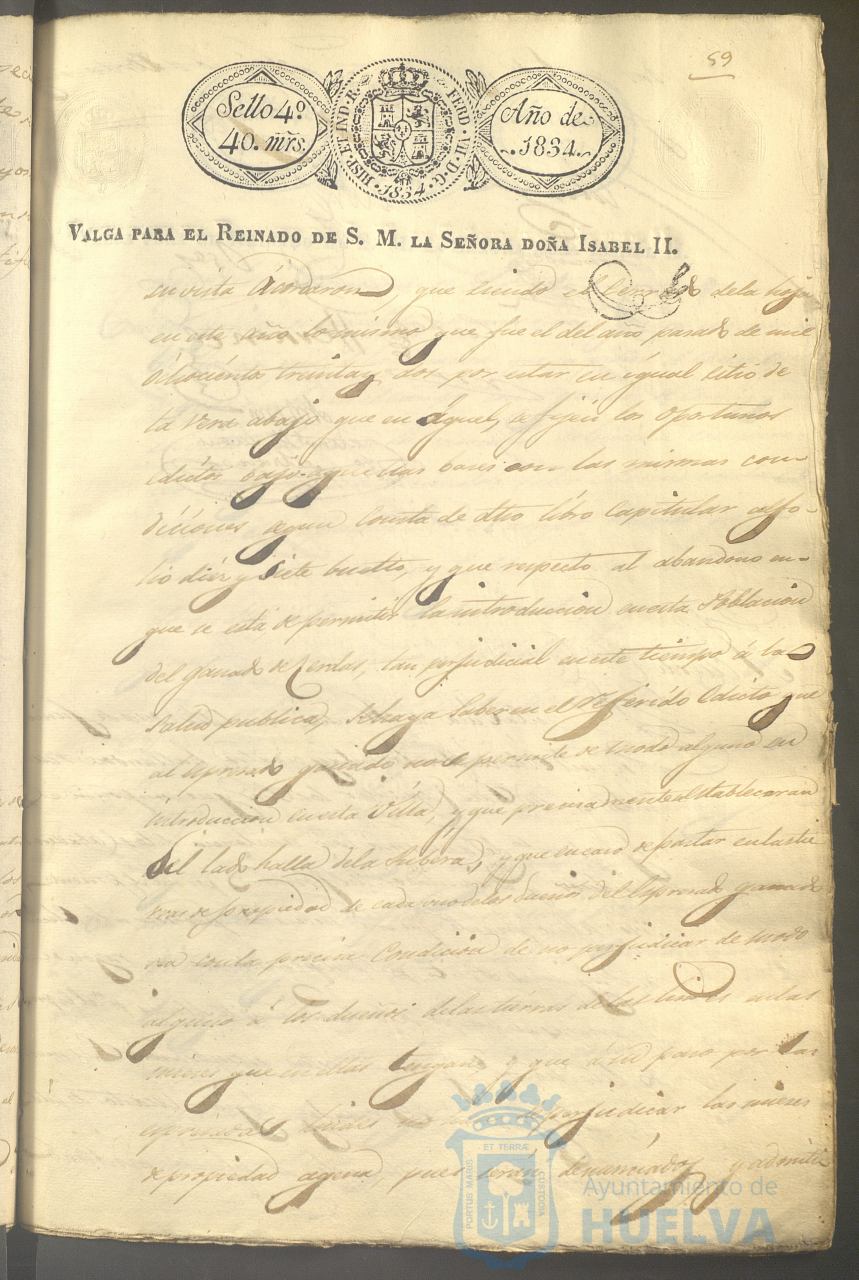 59
Sello 4º
40. mrs.
HISP. ET IND. R. FERD. VII. D. G. 1834.
Año de
1834.
VALGA PARA EL REINADO DE S. M. LA SEÑORA DOÑA ISABEL II.
en vista Acordaron, que siendo el de la hoja
en este año lo mismo que fue el del año pasado de mil
Ochocientos treinta y dos por estar en igual sitio de
la Vera abajo que en aquel, se fijen los oportunos
edictos bajo aquellas bases con las mismas con-
diciones segun consta de dho libro Capitular al fo-
lio diez y siete buelto, y que respecto al abandono en
que se está de permitir la introduccion en esta Poblacion
del ganado de Cerdas, tan perjudicial en este tiempo á la
salud publica, se haga saber en el referido Edicto que
al espresado ganado no se permite de modo alguno su
introduccion en esta Villa, y que precisamente al
del lado halla de la Rivera, y que en caso de pastar en las tie-
rras de propiedad de cada uno de los dueños del espresado ganado
sea con la precisa Condicion de no perjudicar de modo
alguno á los dueños de las tierras de los en las
mieses que en ellas tengan, y que á su paso por las
perjudicar las mieses
de propiedad agena, pues serán denunciados y
PORTUS MARIS ET TERRAE CUSTODIA
Ayuntamiento de
HUELVA